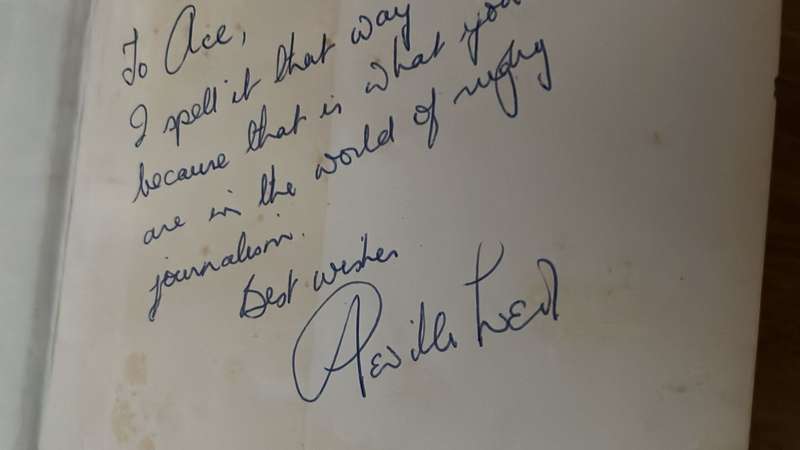 To Ace,
I spell it that way
because that is what you
are in the world of rugby
journalism.
Best wishes
Neville Leck